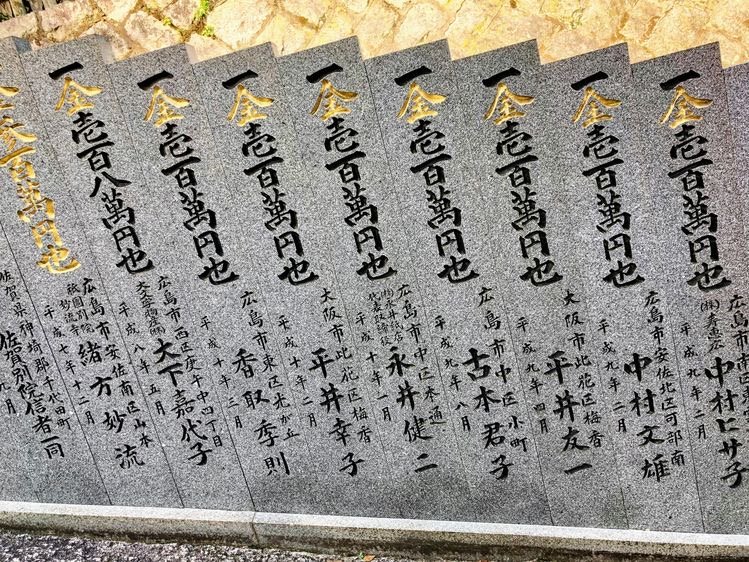 一金壱百萬円也
平成九年二月
中村ヒサ子
一金壱百萬円也
広島市安佐北区可部南
平成九年二月
中村文雄
一金壱百萬円也
大阪市此花区梅香
平成九年四月
平井友一
一金壱百萬円也
広島市中区小町
平成九年八月
古本君子
一金壱百萬円也
広島市中区本通
㈱永井紙店
代表取締役
平成十年一月
永井健二
一金壱百萬円也
大阪市此花区梅香
平成十年二月
平井幸子
一金壱百萬円也
広島市東区光が丘
平成十年三月
香取季則
一金壱百萬円也
広島市西区庚午中四丁目
平成八年五月
大下嘉代子
一金壱百八萬円也
広島市安佐南区山本
祇園別院
妙流寺
平成七年十二月
緒方妙流
参百萬円也
佐賀県神埼郡千代田町
九月
佐賀別院信者一同